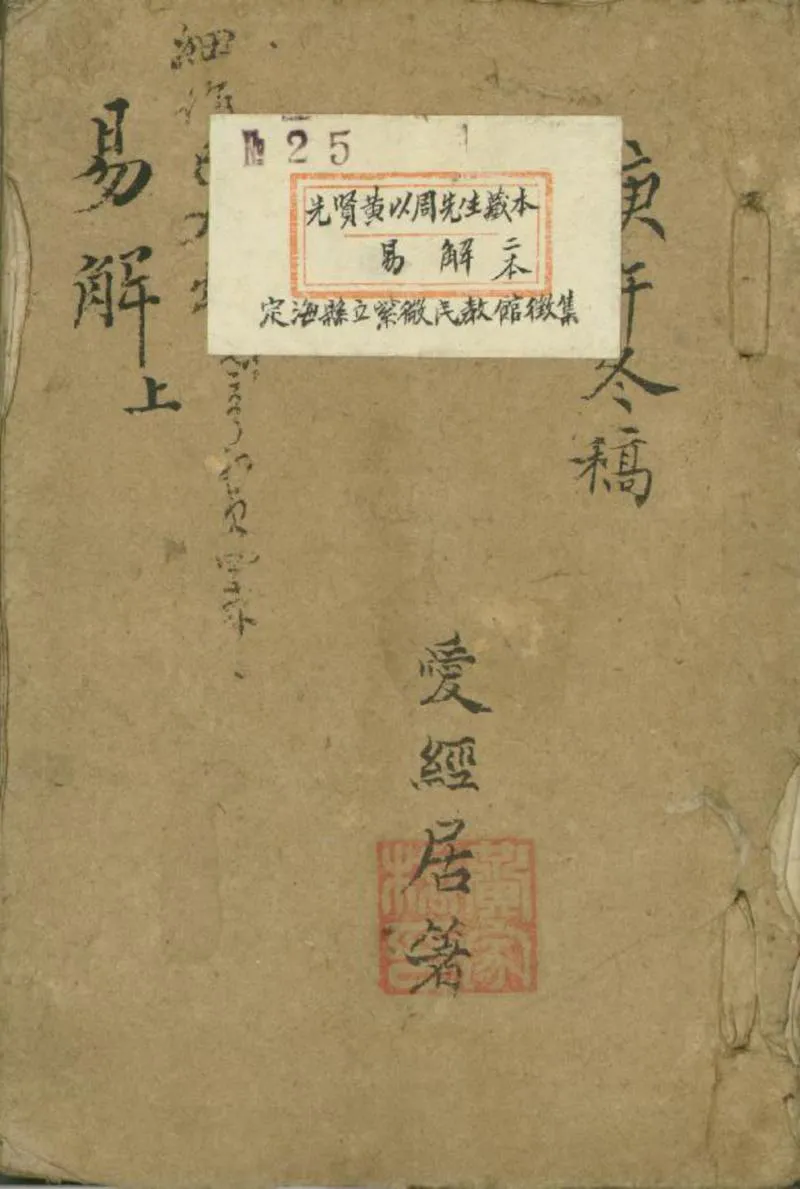 庚午冬稿
愛經居著
№ 25
先賢黃以周先生藏本
易解 二本
定海縣立紫微民教館徵集
細
易解上